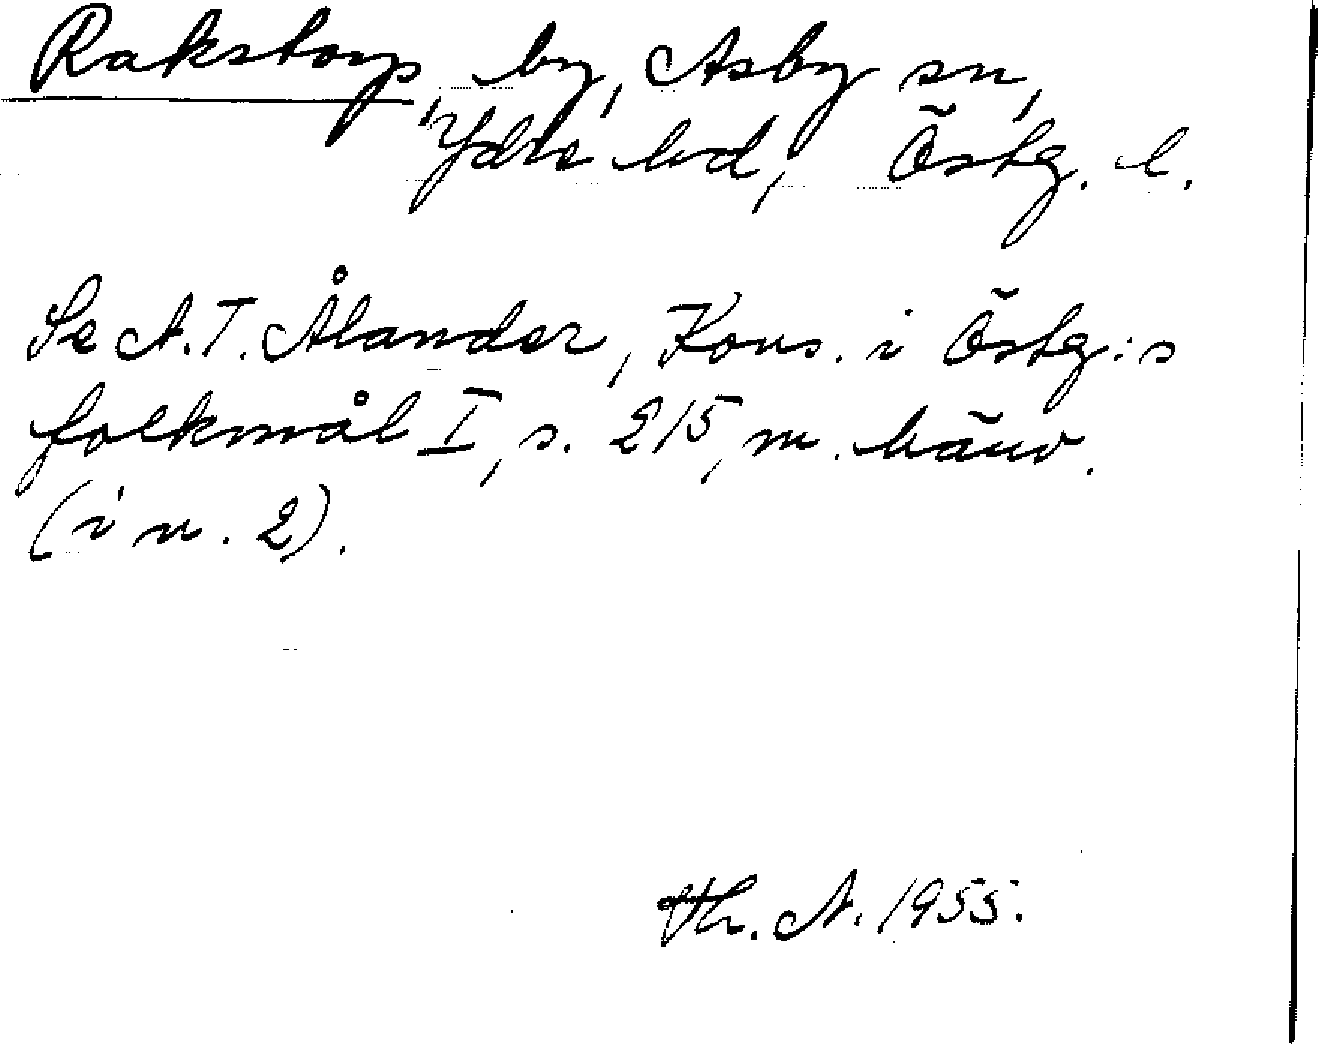 Rakstorp, by, Asby sn,
Ydre hd, Östg. l.
Se A. T. Ålander, Kons. i Östg:s
folkmål I, s. 215, m. hänv.
(i n. 2).
Th. A. 1955.